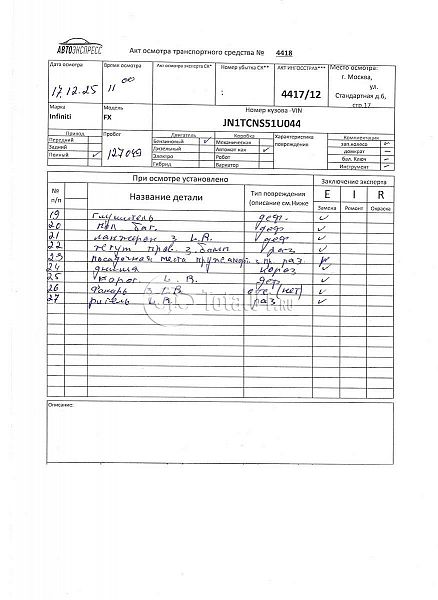 АВТОЭКСПРЕСС
Акт осмотра транспортного средства № 4418
Дата осмотра
Время осмотра
Акт осмотра эксперта СК*
Номер убытка СК**
АКТ ИНГОССТРАХ***
Место осмотра:
г. Москва,
ул.
Стандартная д.6,
стр.17
17.12.25
11 00
:
4417/12
Марка
Модель
Номер кузова -VIN
Infiniti
FX
JN1TCNS51U044
Привод
Пробег
Двигатель
Коробка
Характеристика
повреждения
Комментарии
Передний
Бензиновый ✓
Механическая
зап.колесо
Задний
Дизельный
Автомат кая ✓
домкрат
Полный ✓
127049
Электро
Робот
бал. Ключ
Гибрид
Вариатор
Инструмент
При осмотре установлено
Заключение эксперта
№
п/п
Название детали
Тип повреждения
(описание см.Ниже
Е И R
Замена Ремонт Окраска
19 глушитель деф. ✓
20 пол баг. деф ✓
21 лонжерон з L.R. деф ✓
22 жгут пров. з. бамп раз ✓
23 пр. раз.
24 днища короз ✓
25 L.R. деф ✓
26 фонарь отс (нет) ✓
27 L.R. раз ✓
Total01.RU
Описание: